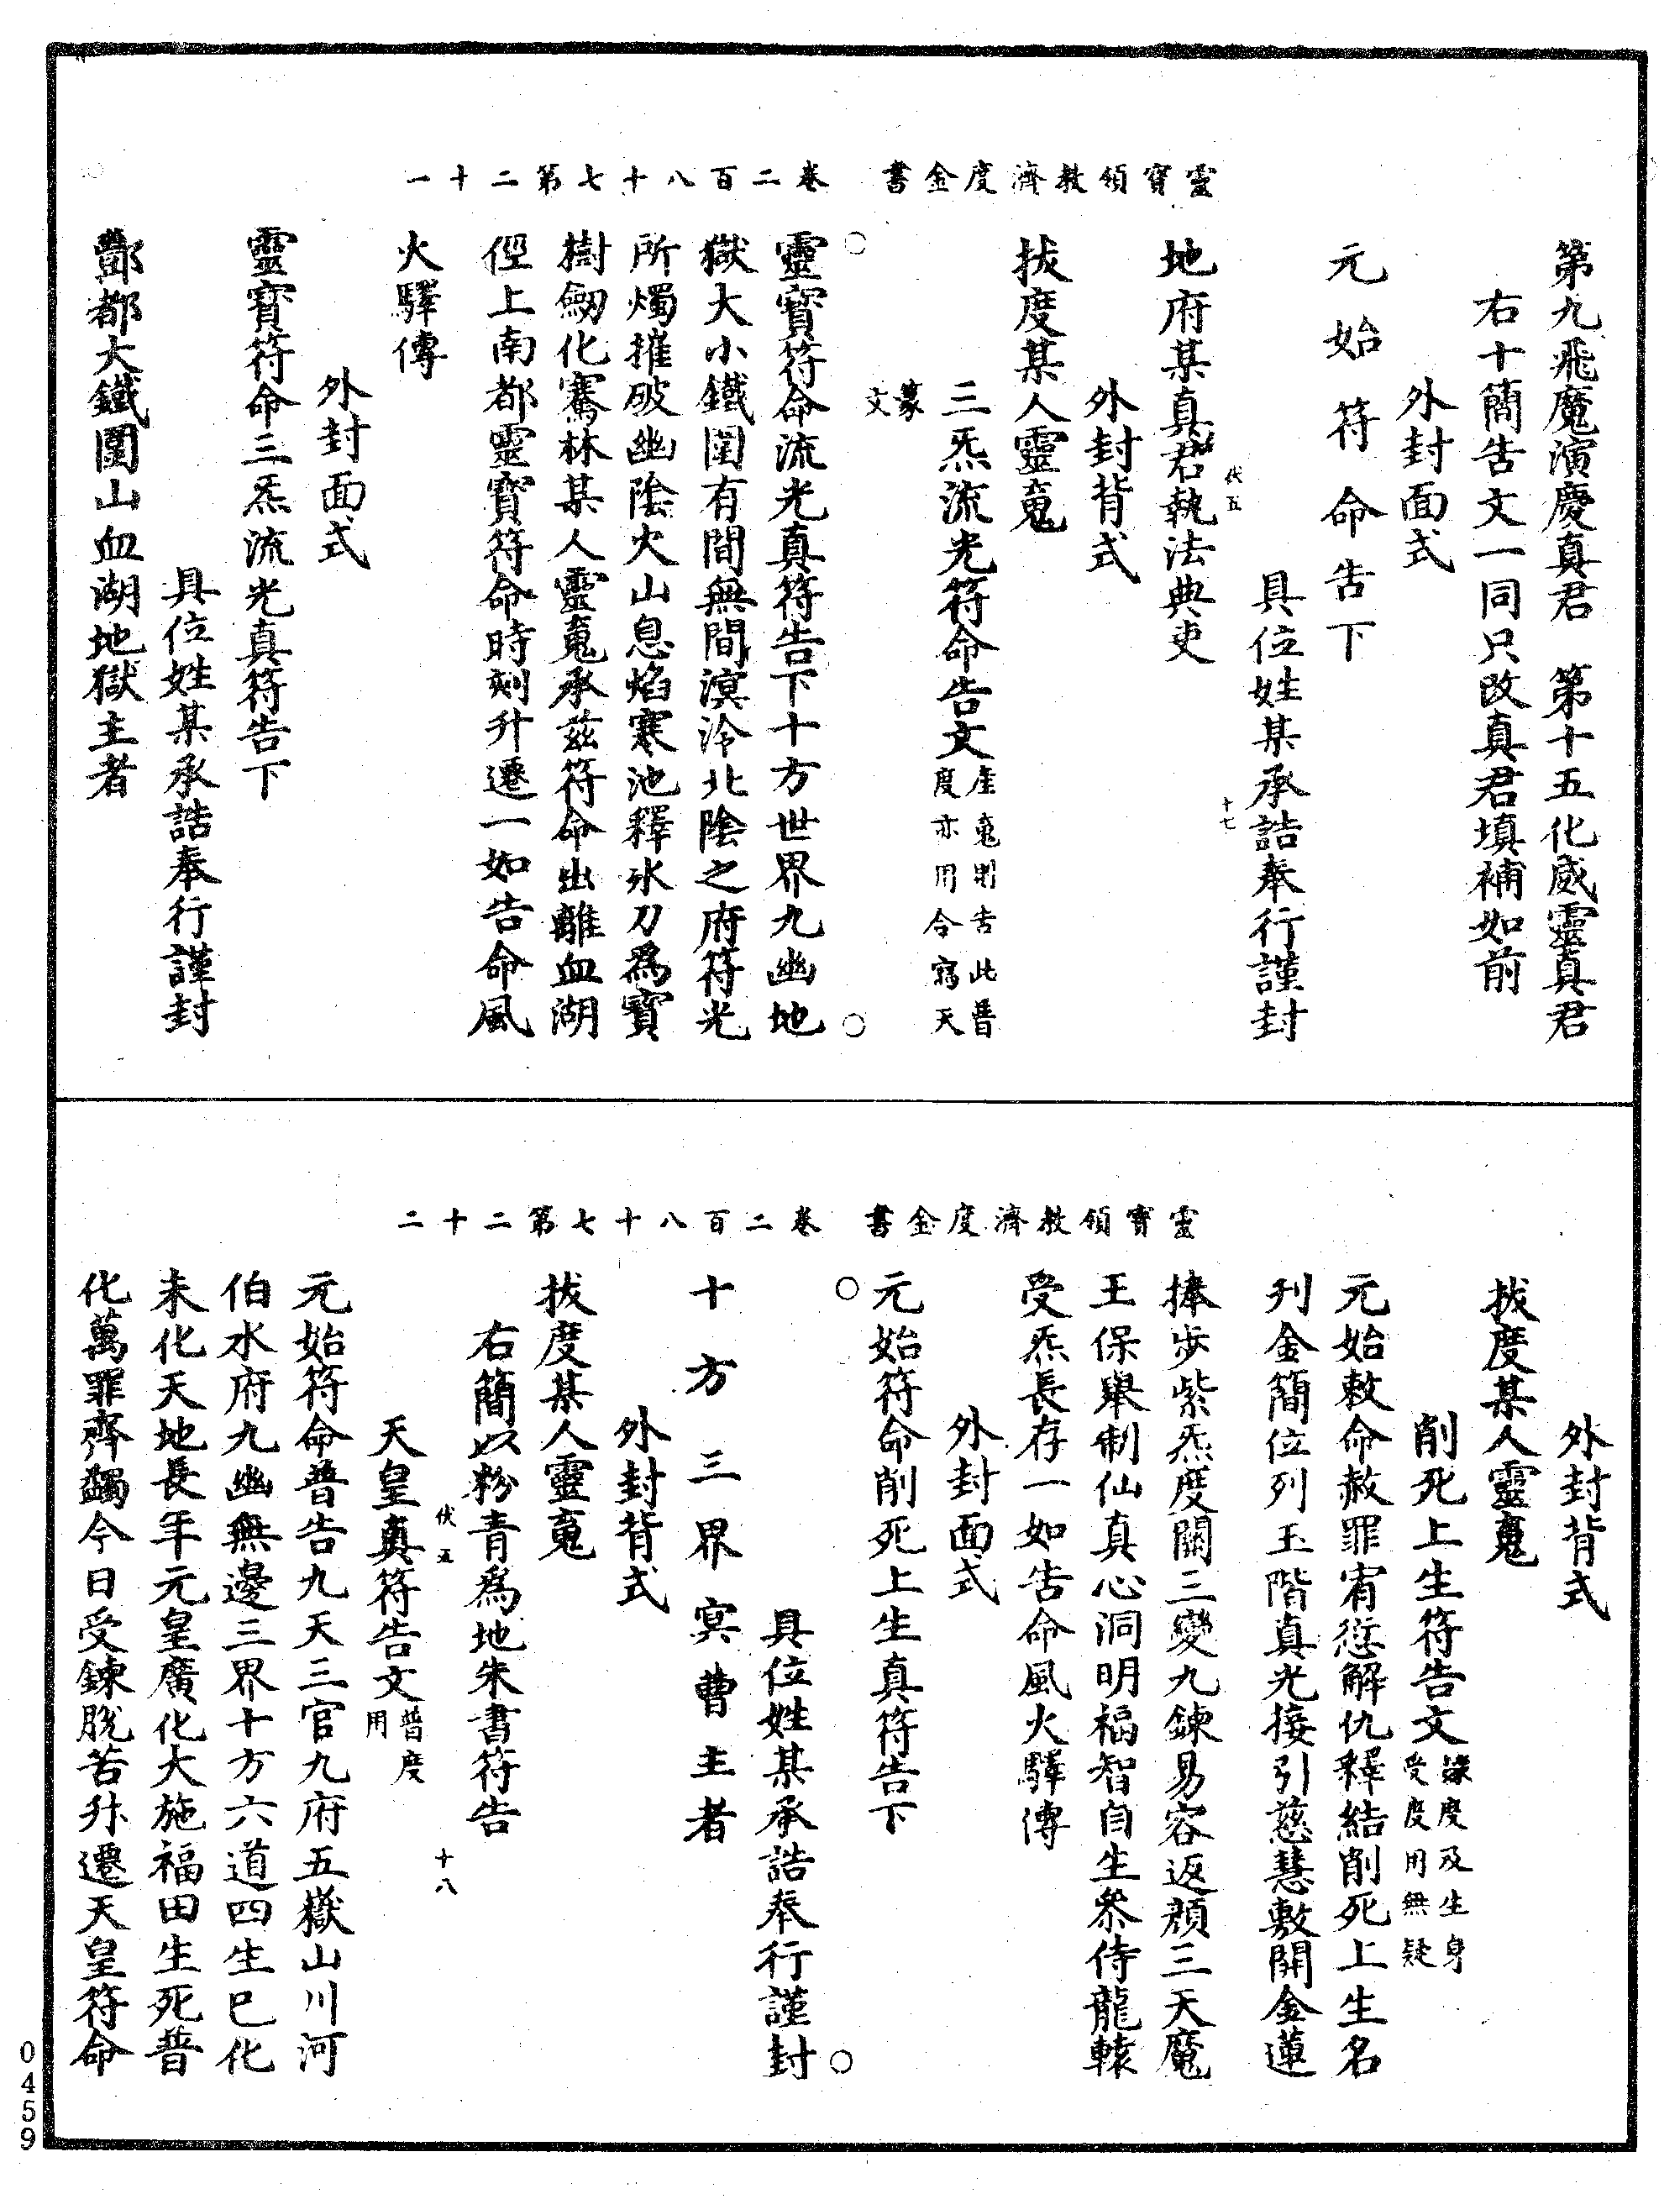 靈寶領教濟度金書　卷二百八十七第二十一
第九飛魔演慶真君　第十五化威靈真君
右十簡告文一同只改真君填補如前
外封面式
元始符命告下
具位姓某承誥奉行謹封
伏五　十七
地府某真君執法典吏
外封背式
拔度某人靈䰟
三炁流光符命告文産䰟則告此普度亦用今寫天篆文
靈寶符命流光真符告下十方世界九幽地
獄大小鐵圍有間無間溟泠北陰之府符光
所燭摧破幽陰火山息焰寒池釋氷刀爲寶
樹劒化騫林某人靈䰟承茲符命出離血湖
俓上南都靈寶符命時刻升遷一如告命風
火驛傳
外封面式
靈寶符命三炁流光真符告下
具位姓某承誥奉行謹封
酆都大鐵圍山血湖地獄主者
靈寶領教濟度金書　卷二百八十七第二十二
外封背式
拔度某人靈䰟
削死上生符告文緣度及生身受度用無疑
元始敕命赦罪宥愆解仇釋結削死上生名
刋金簡位列玉階真光接引慈慧敷開金蓮
捧步紫炁度關三變九鍊易容返顏三天魔
王保舉制仙真心洞明福智自生叅侍龍轅
受炁長存一如告命風火驛傳
外封面式
元始符命削死上生真符告下
具位姓某承誥奉行謹封
十方三界冥曹主者
外封背式
拔度某人靈䰟
右簡以粉青爲地朱書符告
伏五　十八
天皇真符告文普度用
元始符命普告九天三官九府五嶽山川河
伯水府九幽無邊三界十方六道四生巳化
未化天地長年元皇廣化大施福田生死普
化萬罪齊蠲今日受鍊脫苦升遷天皇符命
0459